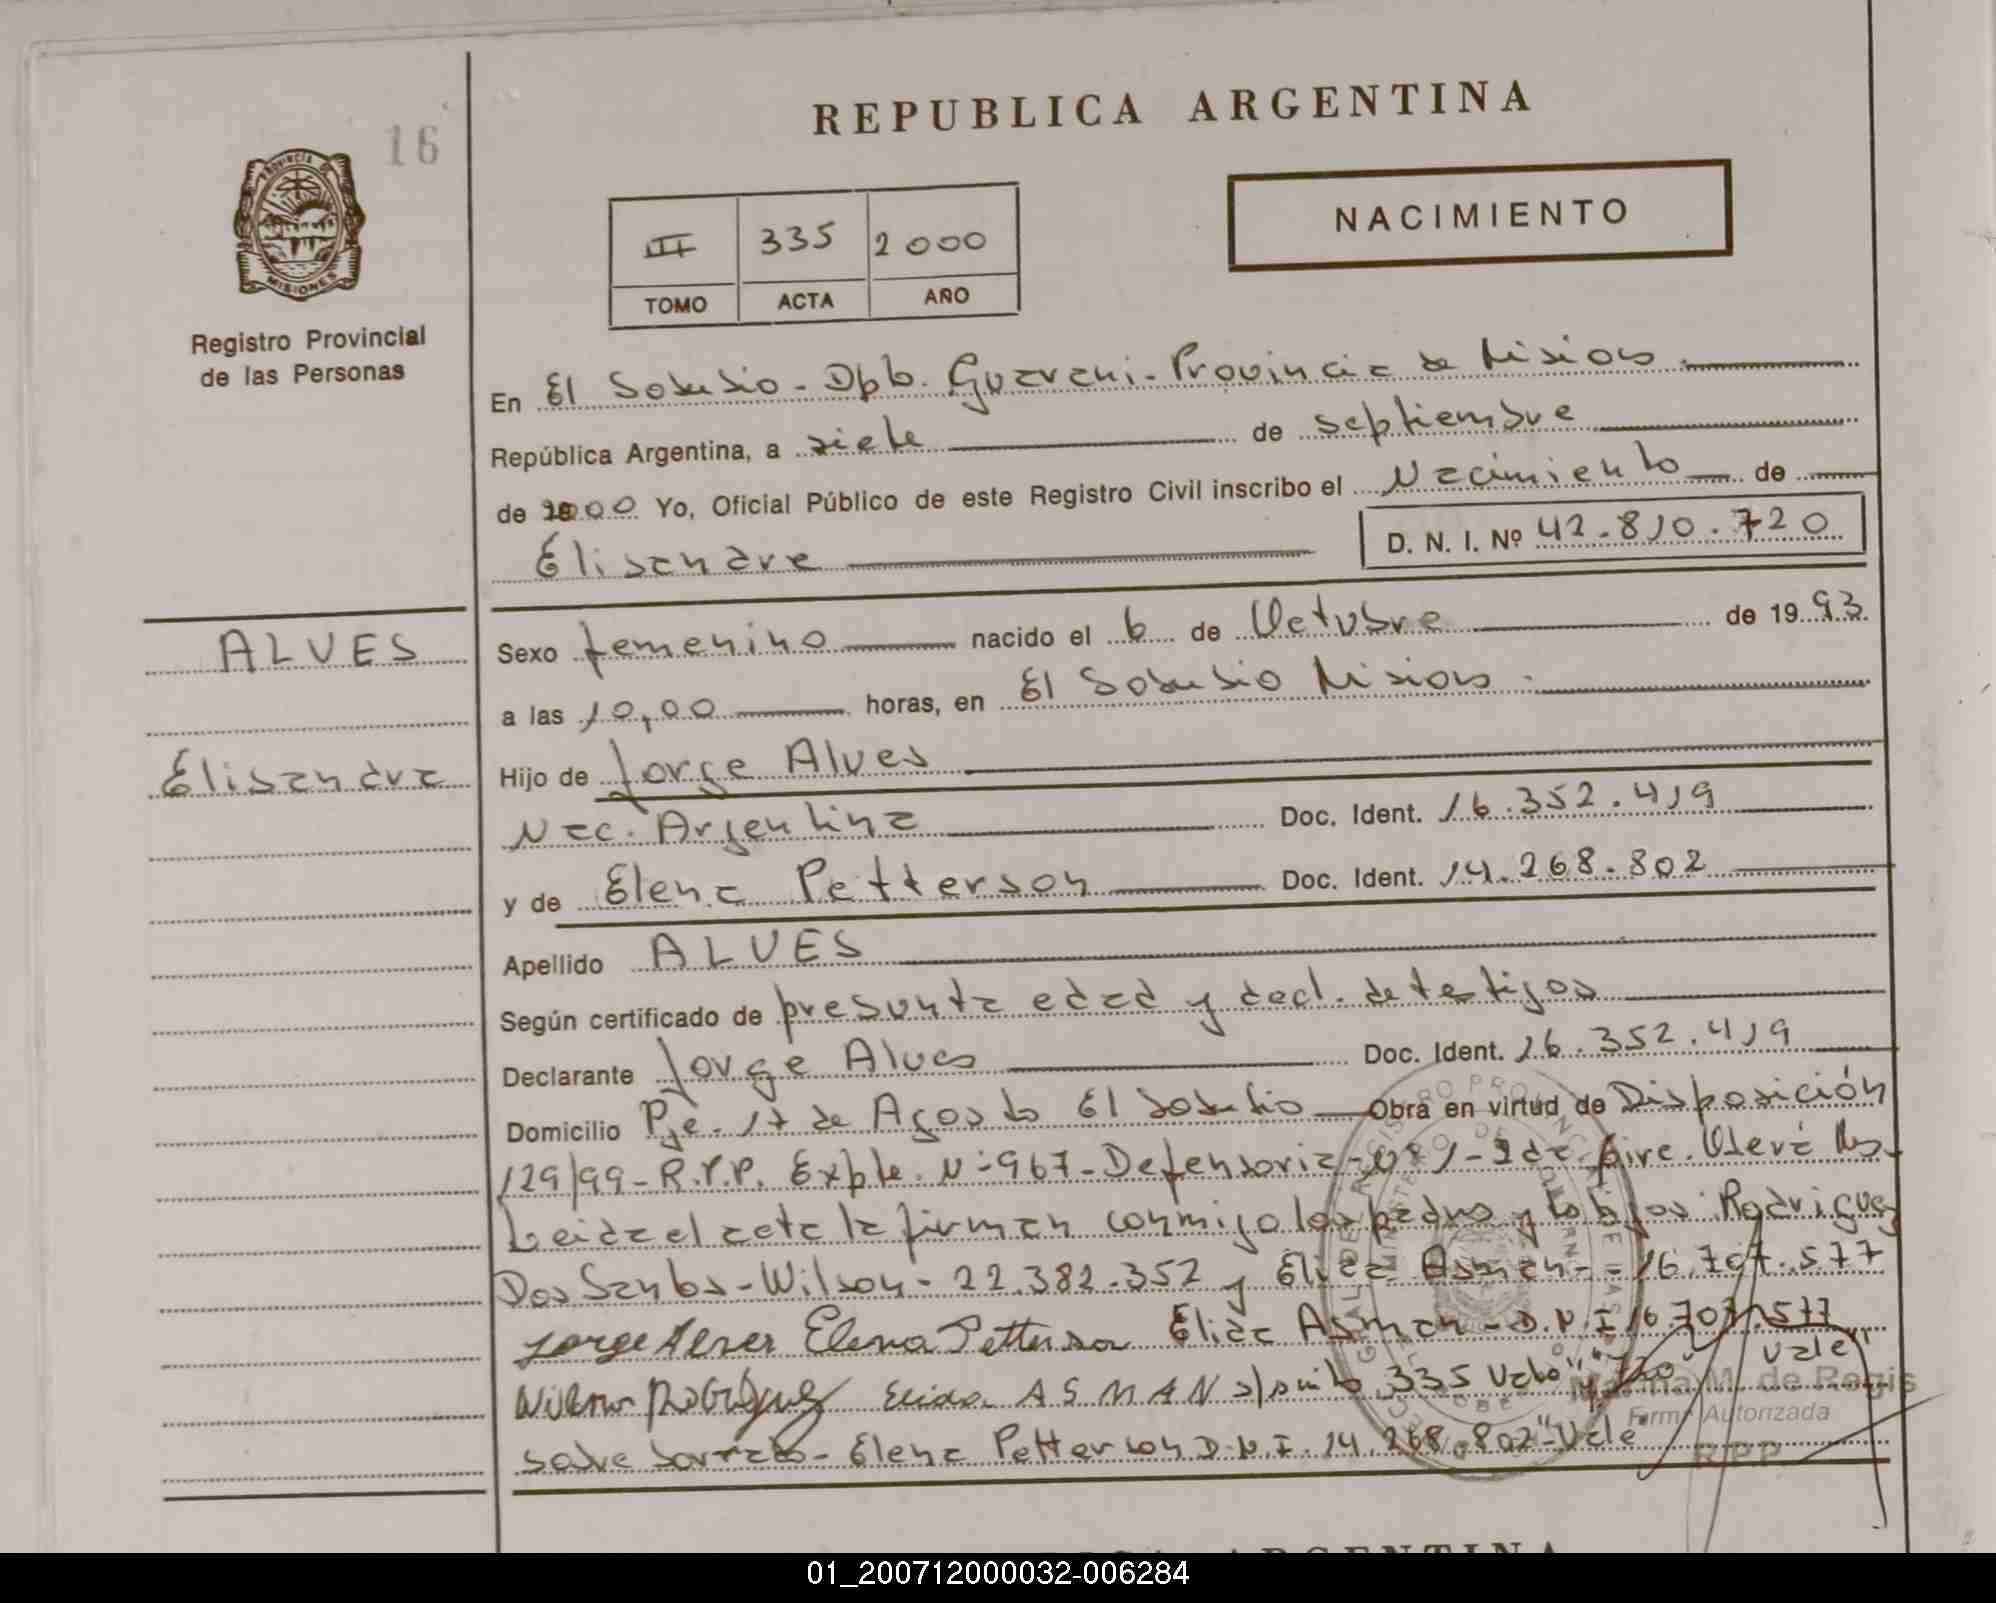 REPUBLICA ARGENTINA
16
NACIMIENTO
II 335 2000
TOMO ACTA AÑO
PROVINCIA DE MISIONES
Registro Provincial
de las Personas
En El Soberbio - Dpto. Guarani - Provincia de Misiones
República Argentina, a siete de septiembre
de 2000 Yo, Oficial Público de este Registro Civil inscribo el Nacimiento de
Elisandra D. N. I. Nº 42.810.720
ALVES
Elisandra
Sexo femenino nacido el 6 de Octubre de 1993
a las 10,00 horas, en El Soberbio Misiones
Hijo de Jorge Alves
Nac. Argentina Doc. Ident. 16.352.419
y de Elena Petterson Doc. Ident. 14.268.802
Apellido ALVES
Según certificado de presunta edad y decl. de testigos
Declarante Jorge Alves Doc. Ident. 16.352.419
Domicilio Pje. 17 de Agosto El Soberbio Obra en virtud de Disposición
129/99 - R.P.P. Expte. Nº 967 - Defensoria - 2da. Circ. Oberá Ms.
Leida el acta la firman conmigo los padres y testigos: Rodriguez
Dos Santos - Wilson - 22.382.352 y Elida Asman - 16.707.577
Jorge Alves Elena Petterson Elida Asman - D.N.I 16.707.577 Vale"
Wilson Rodriguez Elida ASMAN s/ 335 "720"
sobre borrado - Elena Petterson D.N.I. 14.268.802 - Vale"
Marina M. de Regis
Firma Autorizada
R.P.P.
01_200712000032-006284